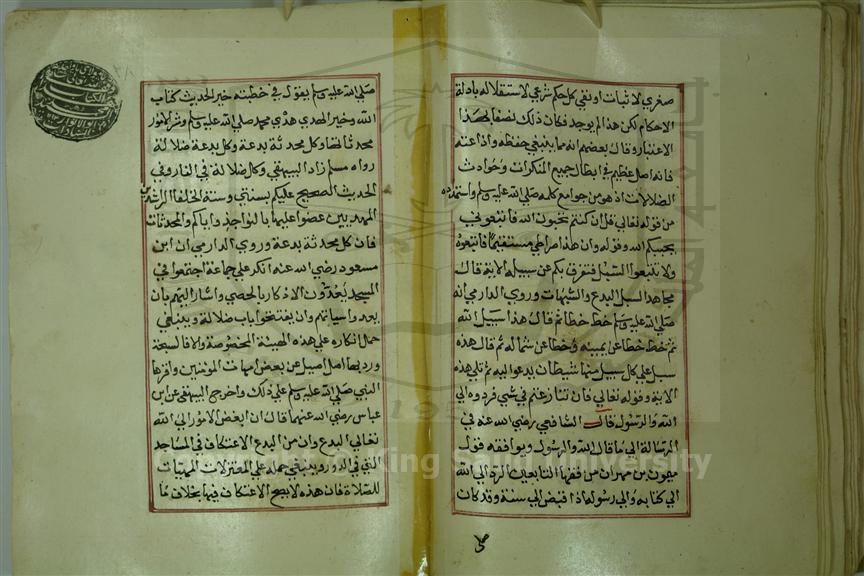 صغري لاثبات اونفي كل حكم شرعي لاستقلاله بادلة
الاحكام لكن هذا لم يوجد فكان ذلك نصفا لهذا
الاعتبار وقال بعضهم انه مما ينبغي حفظه واذاعته
فانه اصل عظيم في ابطال جميع المنكرات وحوادث
الضلالات اذ هو من جوامع كلمه صلي الله عليه وسلم واستمداده
من قوله تعالي قل ان كنتم تحبون الله فاتبعوني
يحببكم الله وقوله وان هذا صراطي مستقيمًا فاتبعوه
ولا تتبعوا السبل فتفرق بكم عن سبيله الاية قال
مجاهد السبل البدع والشبهات وروي الدارمي انه
صلي الله عليه وسلم خط خطا ثم قال هذا سبيل الله
ثم خط خطا عن يمينه وخطا عن شماله ثم قال هذه
سبل علي كل سبيل منها شيطان يدعوا اليه ثم تلي هذه
الاية وقوله تعالي فان تنازعتم في شي فردوه الي
الله والرسول قال الشافعي رضي الله عنه في
الرسالة الي ما قال الله والرسول ويوافقه قول
ميمون بن مهران من فقها التابعين الرد الي الله
الي كتابه والي رسوله اذا قبض الي سنته وقد كان
صلي
صلي الله عليه وسلم يقول في خطبته خير الحديث كتاب
الله وخير الهدي هدي محمد صلي الله عليه وسلم وشر الامور
محدثاتها وكل محدثة بدعة وكل بدعة ضلالة
رواه مسلم زاد البيهقي وكل ضلالة في النار وفي
الحديث الصحيح عليكم بسنتي وسنة الخلفا الراشدين
المهديين عضوا عليها بالنواجذ واياكم والمحدثات
فان كل محدثة بدعة وروي الدارمي ان ابن
مسعود رضي الله عنه انكر علي جماعة اجتمعوا في
المسجد يعدون الاذكار بالحصي واشار اليهم بان
يعدوا سياتهم وان يفتتحوا باب ضلالة وينبغي
حمل انكاره علي هذه الهيئة المخصوصة والا فالسبحة
ورد لها اصل اصيل عن بعض امهات المومنين واقرها
النبي صلي الله عليه وسلم علي ذلك واخرج البيهقي عن ابن
عباس رضي الله عنهما قال ان ابغض الامور الي الله
تعالي البدع وان من البدع الاعتكاف في المساجد
التي في الدور وينبغي حمله علي المعتزلات المهيئات
للصلاة فان هذه لا يصح الاعتكاف فيها بخلاف ما